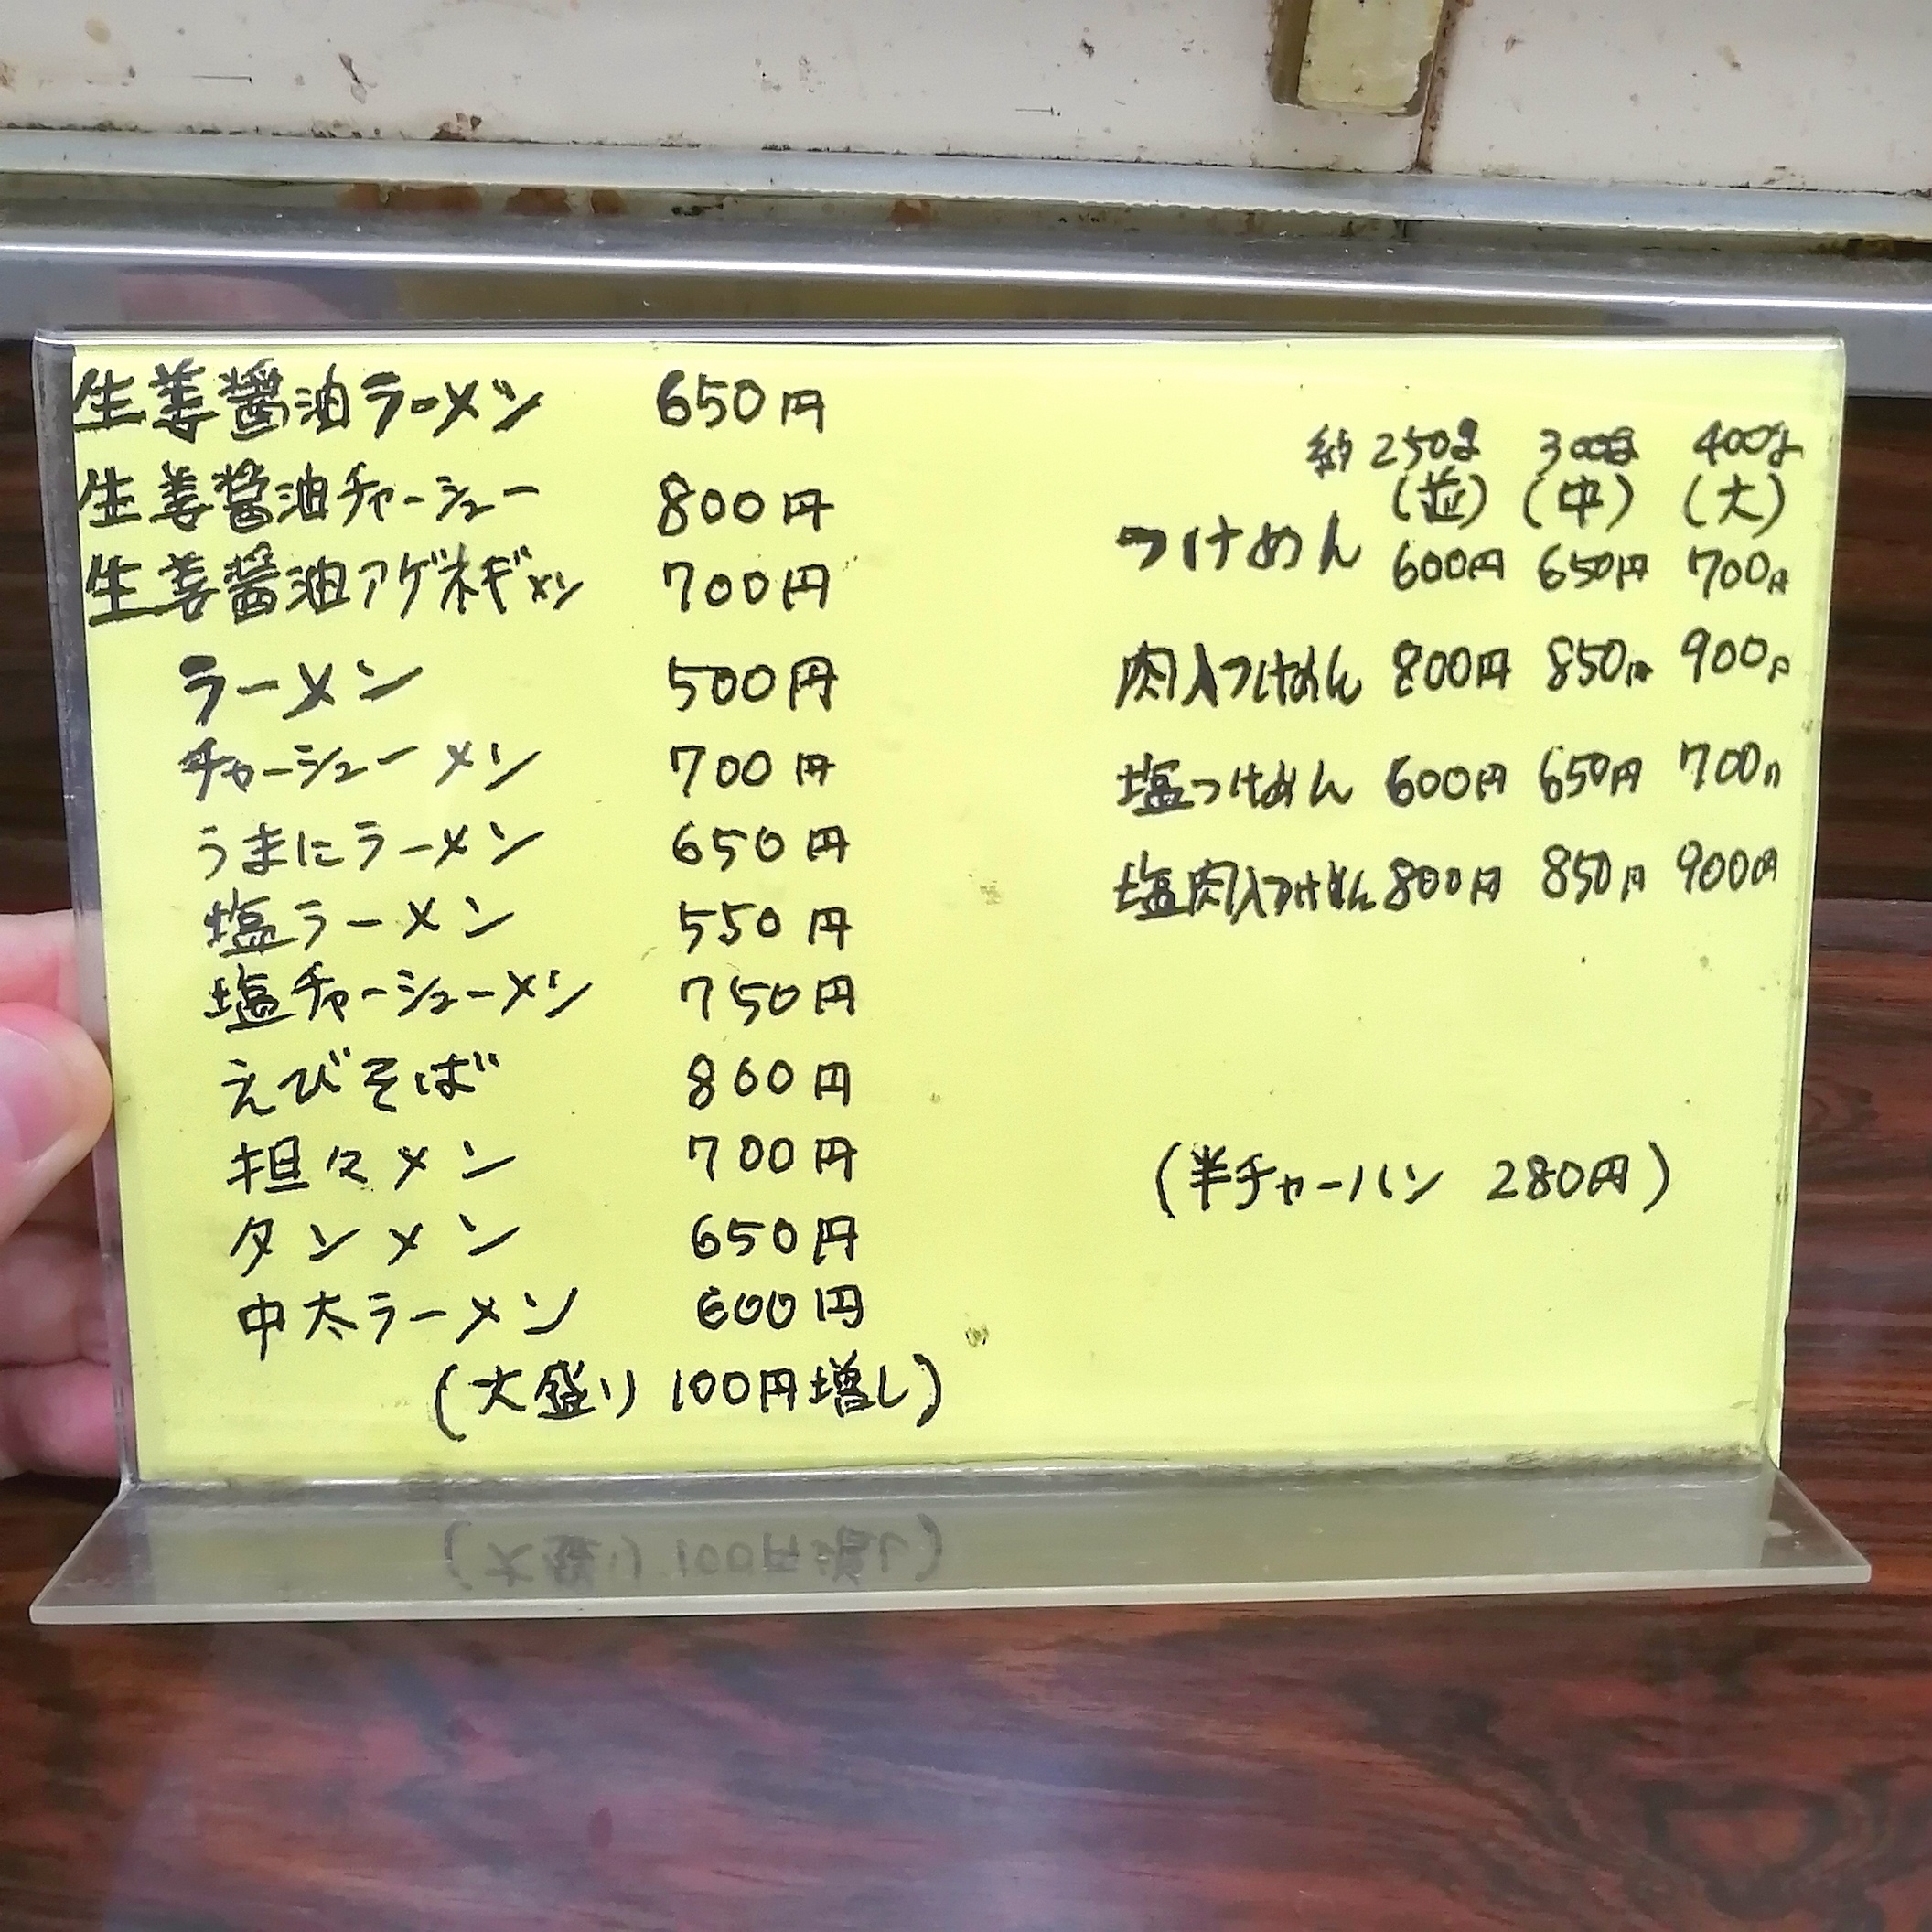 生姜醤油ラーメン 650円
生姜醤油チャーシュー 800円
生姜醤油アゲネギメン 700円
ラーメン 500円
チャーシューメン 700円
うまにラーメン 650円
塩ラーメン 550円
塩チャーシューメン 750円
えびそば 800円
担々メン 700円
タンメン 650円
中太ラーメン 600円
(大盛り 100円増し)
約250g 300g 400g
(並) (中) (大)
つけめん 600円 650円 700円
肉入つけめん 800円 850円 900円
塩つけめん 600円 650円 700円
塩肉入つけめん 800円 850円 900円
(半チャーハン 280円)